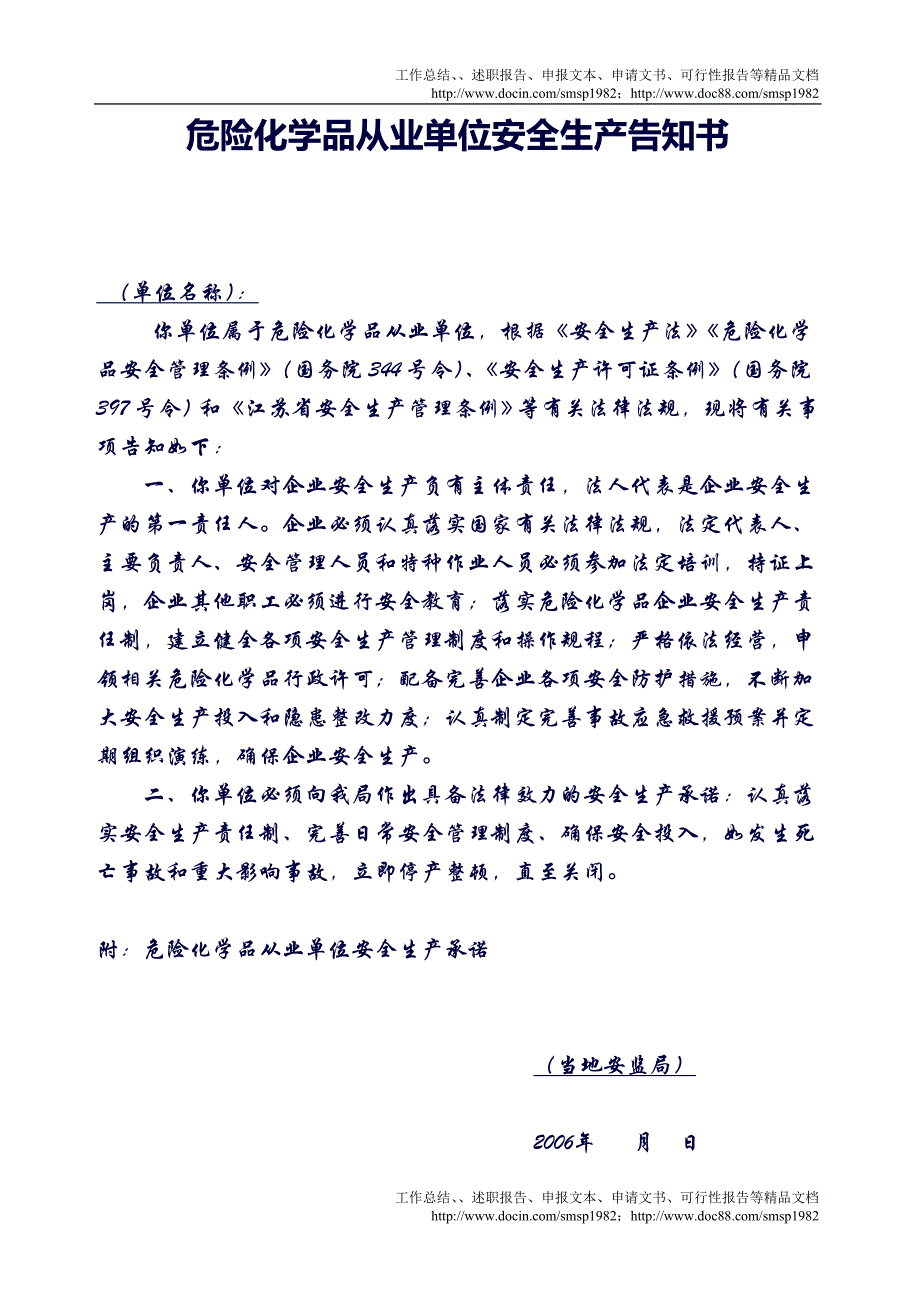 工作总结、、述职报告、申报文本、申请文书、可行性报告等精品文档
http://www.docin.com/smsp1982；http://www.doc88.com/smsp1982
危险化学品从业单位安全生产告知书
（单位名称）：
你单位属于危险化学品从业单位，根据《安全生产法》《危险化学
品安全管理条例》（国务院344号令）、《安全生产许可证条例》（国务院
397号令）和《江苏省安全生产管理条例》等有关法律法规，现将有关事
项告知如下：
一、你单位对企业安全生产负有主体责任，法人代表是企业安全生
产的第一责任人。企业必须认真落实国家有关法律法规，法定代表人、
主要负责人、安全管理人员和特种作业人员必须参加法定培训，持证上
岗，企业其他职工必须进行安全教育；落实危险化学品企业安全生产责
任制，建立健全各项安全生产管理制度和操作规程；严格依法经营，申
领相关危险化学品行政许可；配备完善企业各项安全防护措施，不断加
大安全生产投入和隐患整改力度；认真制定完善事故应急救援预案并定
期组织演练，确保企业安全生产。
二、你单位必须向我局作出具备法律效力的安全生产承诺：认真落
实安全生产责任制、完善日常安全管理制度、确保安全投入，如发生死
亡事故和重大影响事故，立即停产整顿，直至关闭。
附：危险化学品从业单位安全生产承诺
（当地安监局）
2006年 月 日
工作总结、、述职报告、申报文本、申请文书、可行性报告等精品文档
http://www.docin.com/smsp1982；http://www.doc88.com/smsp1982